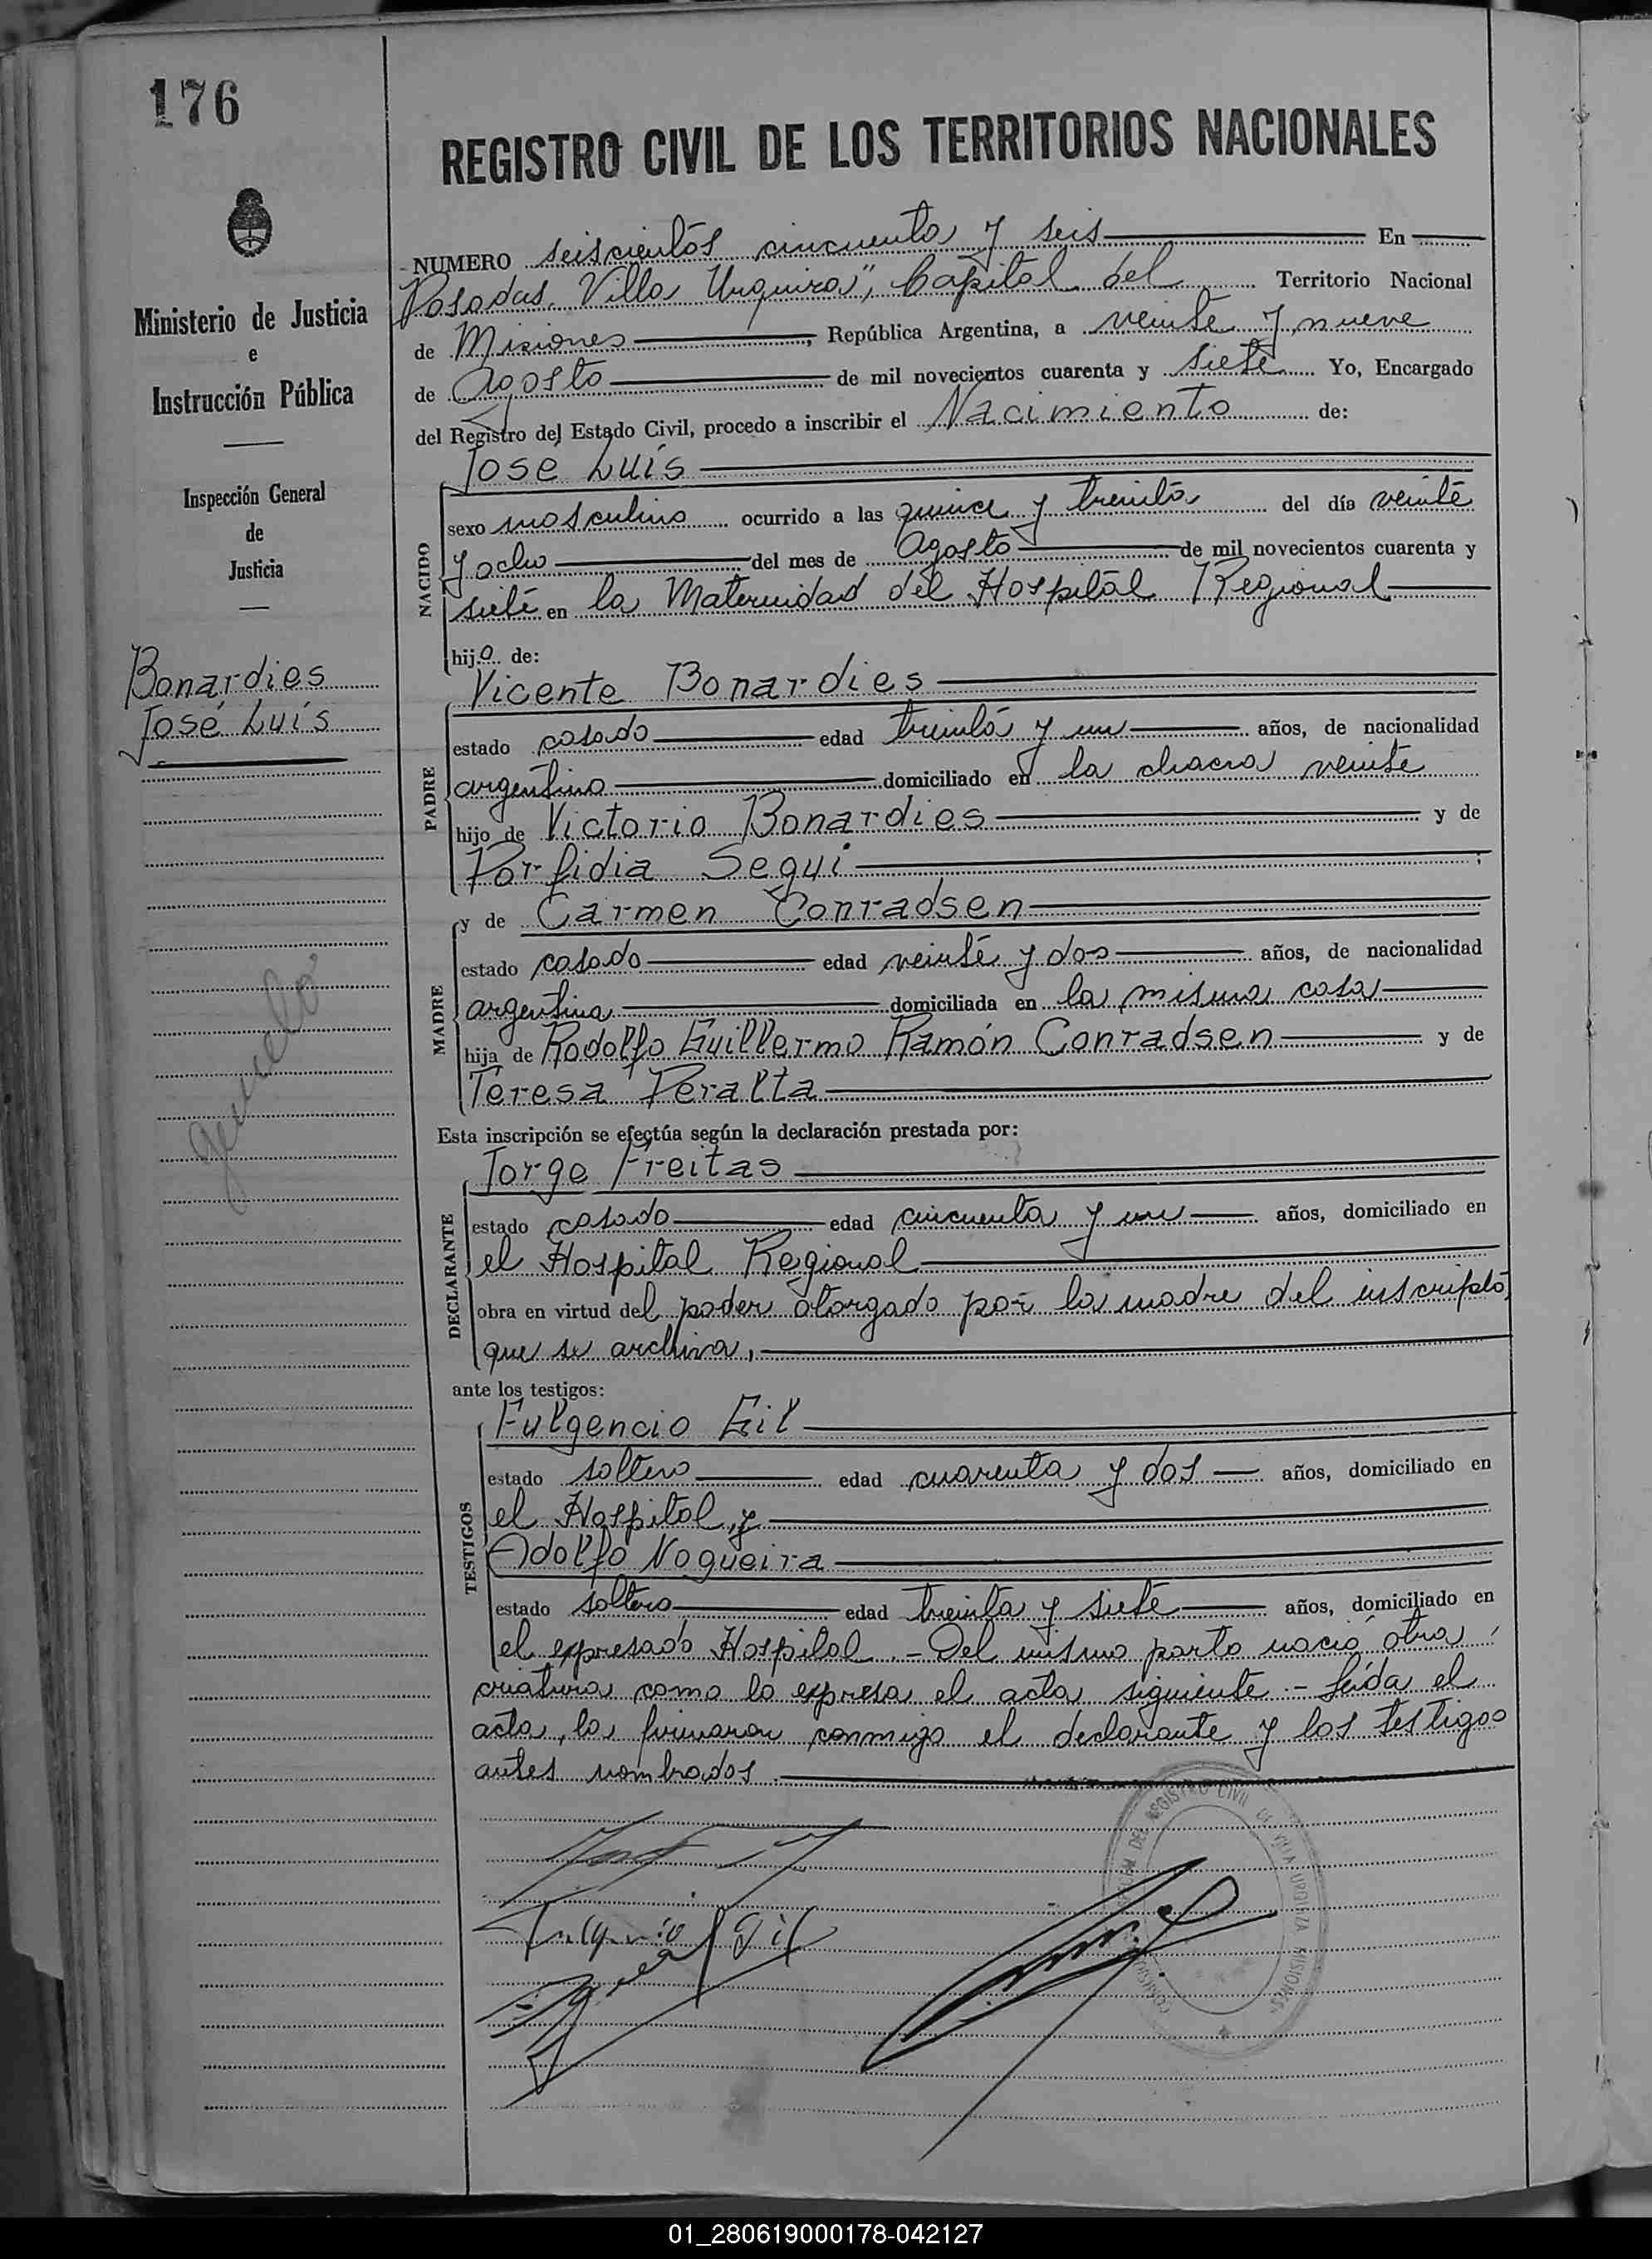 176
REGISTRO CIVIL DE LOS TERRITORIOS NACIONALES
Ministerio de Justicia
e
Instrucción Pública
Inspección General
de
Justicia
Bonardies
José Luís
gemelo
NUMERO seiscientos cincuenta y seis En
Posadas "Villa Urquiza", Capital del Territorio Nacional
de Misiones, República Argentina, a veinte y nueve
de Agosto de mil novecientos cuarenta y siete Yo, Encargado
del Registro del Estado Civil, procedo a inscribir el Nacimiento de:
José Luís
NACIDO
sexo masculino ocurrido a las quince y treinta del día veinte
y ocho del mes de Agosto de mil novecientos cuarenta y
siete en la Maternidad del Hospital Regional
hijo de:
Vicente Bonardies
PADRE
estado casado edad treinta y un años, de nacionalidad
argentino domiciliado en la chacra veinte
hijo de Victorio Bonardies y de
Porfidia Segui;
y de Carmen Conradsen
MADRE
estado casada edad veinte y dos años, de nacionalidad
argentina domiciliada en la misma casa
hija de Rodolfo Guillermo Ramón Conradsen y de
Teresa Peralta
Esta inscripción se efectúa según la declaración prestada por:
Jorge Freitas
DECLARANTE
estado casado edad cincuenta y un años, domiciliado en
el Hospital Regional
obra en virtud del poder otorgado por la madre del inscripto,
que se archiva.
ante los testigos:
Fulgencio Gil
TESTIGOS
estado soltero edad cuarenta y dos años, domiciliado en
el Hospital y
Adolfo Nogueira
estado soltero edad treinta y siete años, domiciliado en
el expresado Hospital.- Del mismo parto nació otra
criatura como lo expresa el acta siguiente.- Leída el
acta, la firmaron conmigo el declarante y los testigos
antes nombrados.
DEL REGISTRO CIVIL DE VILLA URQUIZA MISIONES
Fulgencio Gil
01_280619000178-042127